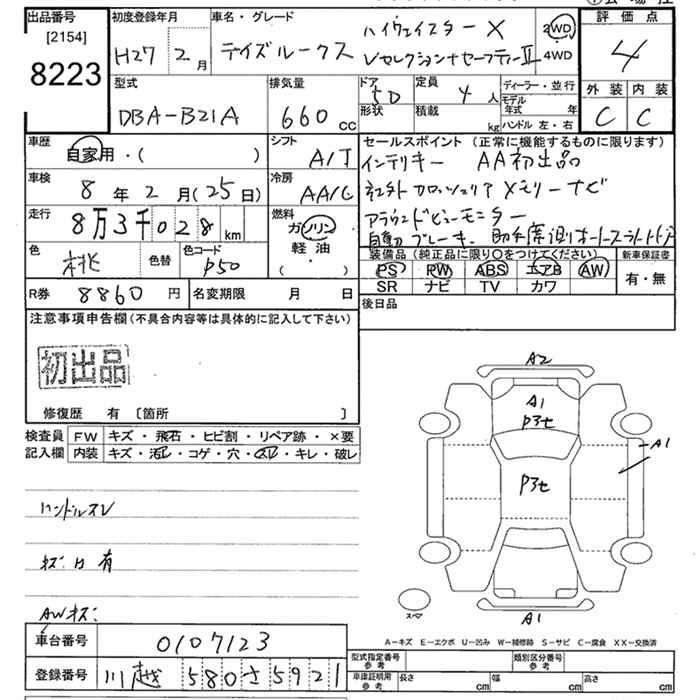 出品番号
[2154]
8223
初度登録年月
H27年 2月
車名・グレード
デイズルークス
ハイウェイスターX
Vセレクション+セーフティーII
2WD
4WD
評価点
4
外装 内装
C C
型式
DBA-B21A
排気量
660 cc
ドア
5D
定員
4人
形状
積載
kg
ディーラー・並行
モデル年式 年
ハンドル 左・右
車歴
自家用・( )
シフト
AT
車検
8年2月(25日)
冷房
AAC
走行
8万3千028km
燃料
ガソリン
軽油
( )
色
桃
色替
色コード
P50
R券 8860円
名変期限 月 日
セールスポイント (正常に機能するものに限ります)
インテリキー AA初出品
社外カロッツェリアメモリーナビ
アラウンドビューモニター
自動ブレーキ 助手席側オートスライドドア
装備品 (純正品に限り○をつけてください)
PS PW ABS エアB AW
SR ナビ TV カワ
新車保証書
有・無
後日品
注意事項申告欄 (不具合内容等は具体的に記入して下さい)
初出品
修復歴 有 [箇所 ]
検査員記入欄
FW キズ・飛石・ヒビ割・リペア跡・×要
内装 キズ・汚レ・コゲ・穴・スレ・キレ・破レ
ハンドルスレ
キズ凹有
AWキズ:
A2
A1
P3セ
A1
P3セ
スペア
A1
A-キズ E-エクボ U-凹み W-補修跡 S-サビ C-腐食 XX-交換済
車台番号 0107123
登録番号 川越 580 さ 5921
型式指定番号
参考
類別区分番号
参考
車庫証明用
参考
長さ cm 幅 cm 高さ cm